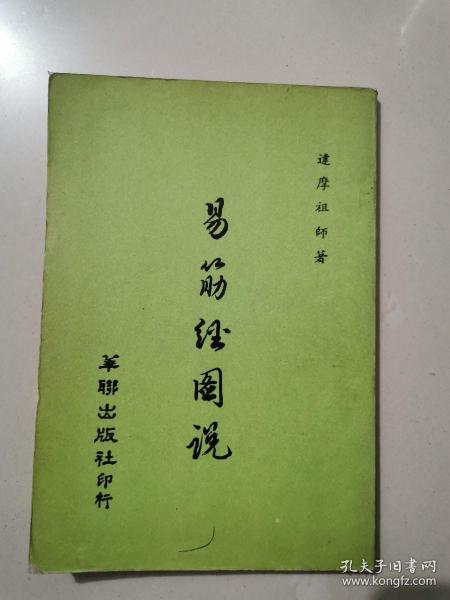 達摩祖師著
易筋經圖說
華聯出版社印行
孔夫子旧书网
www.kongfz.com